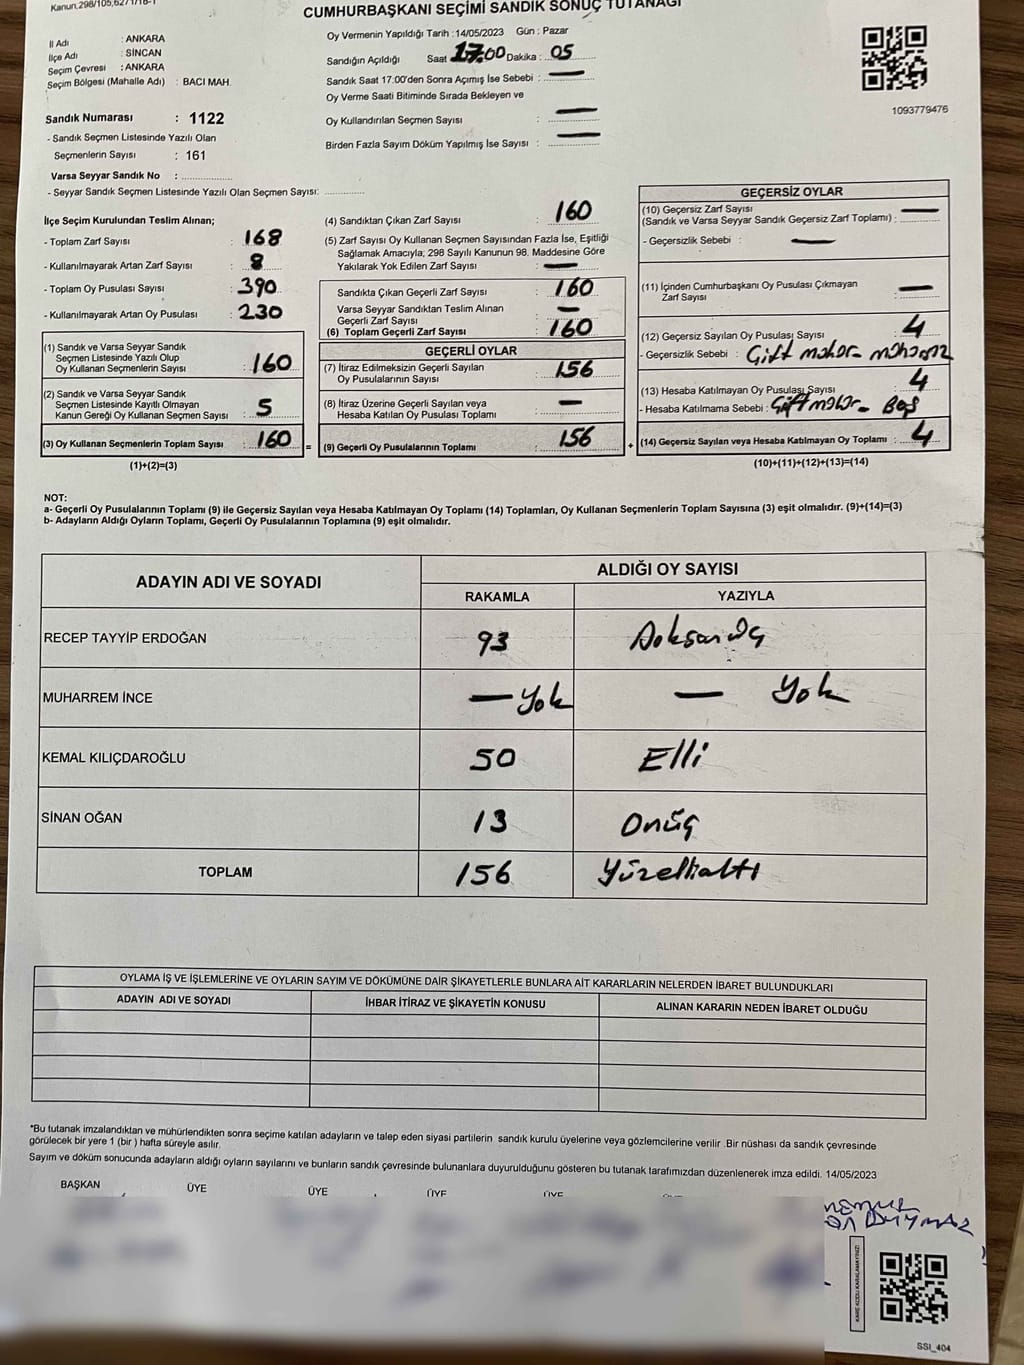 Kanun,298/105,
CUMHURBAŞKANI SEÇİMİ SANDIK SONUÇ TUTANAĞI
İl Adı : ANKARA
İlçe Adı : SİNCAN
Seçim Çevresi : ANKARA
Seçim Bölgesi (Mahalle Adı) : BACI MAH.
Sandık Numarası : 1122
- Sandık Seçmen Listesinde Yazılı Olan
Seçmenlerin Sayısı : 161
Varsa Seyyar Sandık No :
- Seyyar Sandık Seçmen Listesinde Yazılı Olan Seçmen Sayısı:
Oy Vermenin Yapıldığı Tarih :14/05/2023 Gün : Pazar
Sandığın Açıldığı Saat 17.00 Dakika : 05
Sandık Saat 17:00'den Sonra Açımış İse Sebebi : —
Oy Verme Saati Bitiminde Sırada Bekleyen ve
Oy Kullandırılan Seçmen Sayısı : —
Birden Fazla Sayım Döküm Yapılmış İse Sayısı : —
1093779476
İlçe Seçim Kurulundan Teslim Alınan;
- Toplam Zarf Sayısı : 168
- Kullanılmayarak Artan Zarf Sayısı : 8
- Toplam Oy Pusulası Sayısı : 390
- Kullanılmayarak Artan Oy Pusulası : 230
(1) Sandık ve Varsa Seyyar Sandık
Seçmen Listesinde Yazılı Olup
Oy Kullanan Seçmenlerin Sayısı : 160
(2) Sandık ve Varsa Seyyar Sandık
Seçmen Listesinde Kayıtlı Olmayan
Kanun Gereği Oy Kullanan Seçmen Sayısı : 5
(3) Oy Kullanan Seçmenlerin Toplam Sayısı : 160 =
(1)+(2)=(3)
(4) Sandıktan Çıkan Zarf Sayısı : 160
(5) Zarf Sayısı Oy Kullanan Seçmen Sayısından Fazla İse, Eşitliği
Sağlamak Amacıyla, 298 Sayılı Kanunun 98. Maddesine Göre
Yakılarak Yok Edilen Zarf Sayısı : —
Sandıkta Çıkan Geçerli Zarf Sayısı : 160
Varsa Seyyar Sandıktan Teslim Alınan
Geçerli Zarf Sayısı : —
(6) Toplam Geçerli Zarf Sayısı : 160
GEÇERLİ OYLAR
(7) İtiraz Edilmeksizin Geçerli Sayılan
Oy Pusulalarının Sayısı : 156
(8) İtiraz Üzerine Geçerli Sayılan veya
Hesaba Katılan Oy Pusulası Toplamı : —
(9) Geçerli Oy Pusulalarının Toplamı : 156 +
GEÇERSİZ OYLAR
(10) Geçersiz Zarf Sayısı
(Sandık ve Varsa Seyyar Sandık Geçersiz Zarf Toplamı) : —
- Geçersizlik Sebebi : —
(11) İçinden Cumhurbaşkanı Oy Pusulası Çıkmayan
Zarf Sayısı : —
(12) Geçersiz Sayılan Oy Pusulası Sayısı : 4
- Geçersizlik Sebebi : Çift mühür - mühürsüz
(13) Hesaba Katılmayan Oy Pusulası Sayısı : 4
- Hesaba Katılmama Sebebi : Çift mühür - Boş
(14) Geçersiz Sayılan veya Hesaba Katılmayan Oy Toplamı : 4
(10)+(11)+(12)+(13)=(14)
NOT:
a- Geçerli Oy Pusulalarının Toplamı (9) ile Geçersiz Sayılan veya Hesaba Katılmayan Oy Toplamı (14) Toplamları, Oy Kullanan Seçmenlerin Toplam Sayısına (3) eşit olmalıdır. (9)+(14)=(3)
b- Adayların Aldığı Oyların Toplamı, Geçerli Oy Pusulalarının Toplamına (9) eşit olmalıdır.
ADAYIN ADI VE SOYADI
ALDIĞI OY SAYISI
RAKAMLA YAZIYLA
RECEP TAYYİP ERDOĞAN 93 Doksan Üç
MUHARREM İNCE — Yok — Yok
KEMAL KILIÇDAROĞLU 50 Elli
SİNAN OĞAN 13 Onüç
TOPLAM 156 Yüzellialtı
OYLAMA İŞ VE İŞLEMLERİNE VE OYLARIN SAYIM VE DÖKÜMÜNE DAİR ŞİKAYETLERLE BUNLARA AİT KARARLARIN NELERDEN İBARET BULUNDUKLARI
ADAYIN ADI VE SOYADI İHBAR İTİRAZ VE ŞİKAYETİN KONUSU ALINAN KARARIN NEDEN İBARET OLDUĞU
*Bu tutanak imzalandıktan ve mühürlendikten sonra seçime katılan adayların ve talep eden siyasi partilerin sandık kurulu üyelerine veya gözlemcilerine verilir .Bir nüshası da sandık çevresinde
görülecek bir yere 1 (bir ) hafta süreyle asılır.
Sayım ve döküm sonucunda adayların aldığı oyların sayılarını ve bunların sandık çevresinde bulunanlara duyurulduğunu gösteren bu tutanak tarafımızdan düzenlenerek imza edildi. 14/05/2023
BAŞKAN ÜYE ÜYE ÜYE ÜYE
DUYMAZ
KARE KODU KARALAMAYINIZ!
SSI_404